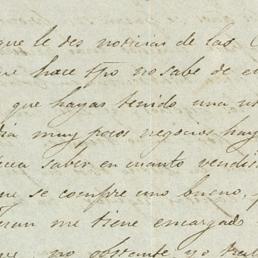 que le des noticias de las
hace tpo no sabe de
que hayas tenido una
muy pocos negocios hay
saber en cuanto vendis
se compre uno bueno,
me tiene encargado
no obstante yo